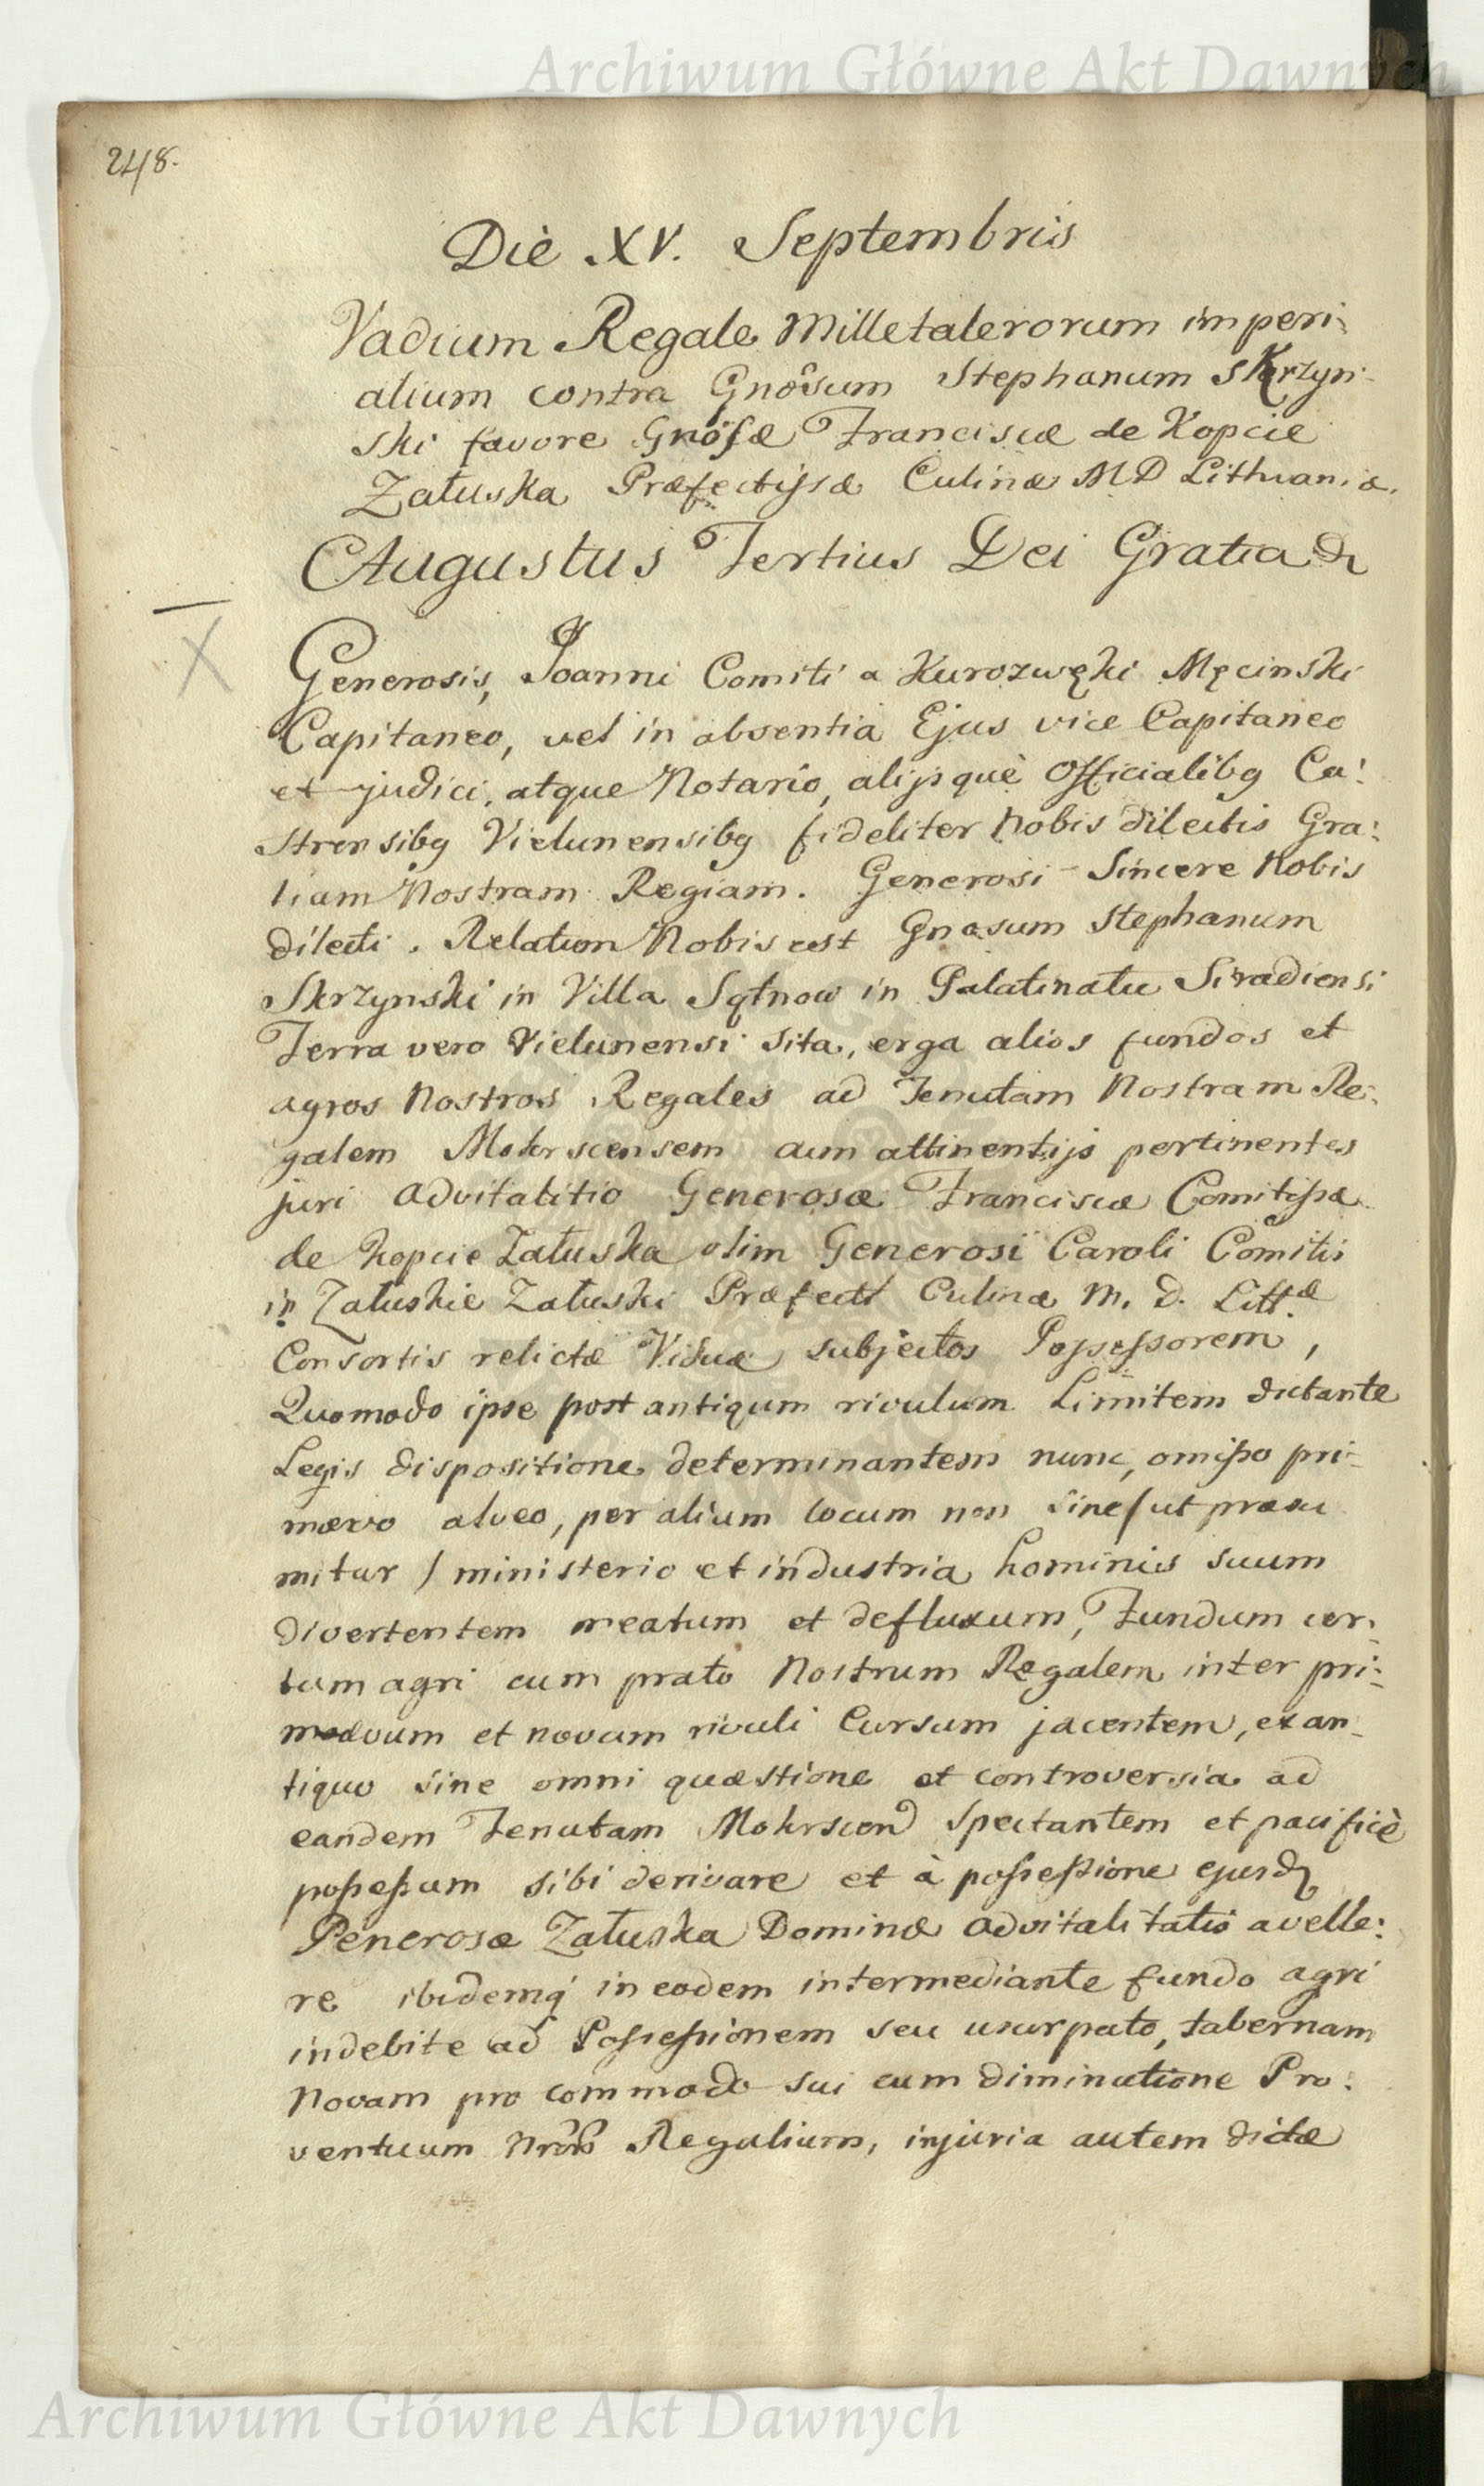 Archiwum Główne Akt Dawnych
248.
Die XV. Septembris
Vadium Regale Milletalerorum imperi-
alium contra Gnôsum Stephanum Skrzyn-
ski favore Gnôsæ Franciscæ de Kopcie
Załuska Præfectissæ Culinæ M D Lithvaniæ.
Augustus Tertius Dei Gratia &
X
Generosis, Joanni Comiti a Kurozwęki Męcinski
Capitaneo, vel in absentia Ejus vice Capitaneo
et judici, atque Notario, alijsquè Officialibq Ca:
strensibq Vielunensibq fideliter Nobis dilectis Gra:
tiam Nostram Regiam. Generosi Sincere Nobis
dilecti. Relatum Nobis est Gnosum Stephanum
Skrzynski in Villa Sątnow in Palatinatu Siradiensi
Terra vero Vielunensi sita, erga alios fundos et
agros Nostros Regales ad Tenutam Nostram Re-
galem Mokrscensem cum attinentijs pertinentes
juri advitalitio Generosæ Franciscæ Comitissæ
de Kopcie Załuska olim Generosi Caroli Comitis
in Załuskie Załuski Præfecti Culinæ M. D. Littæ
Consortis relictæ Viduæ subjectos Possessorem,
Quomodo ipse post antiqum rivulum Limitem dictante
Legis dispositione determinantem nunc, omisso pri-
mævo alveo, per alium locum non sine / ut præsu
mitur / ministerio et industria hominis suum
divertentem meatum et defluxum, Fundum cer-
tum agri cum prato Nostrum Regalem inter pri-
mævum et novum rivuli Cursum jacentem, ex an-
tiquo sine omni quæstione et controversia ad
eandem Tenutam Mokrscen spectantem et pacificè
possessum sibi derivare et à possessione ejusd
Generosæ Załuska Dominæ advitalitatis avelle:
re ibidemq in eodem intermediante fundo agri
indebite ad Possessionem seu usurpato, tabernam
Novam pro commodo sui cum diminutione Pro:
ventuum Nrôrū Regalium, injuria autem dictæ
Archiwum Główne Akt Dawnych